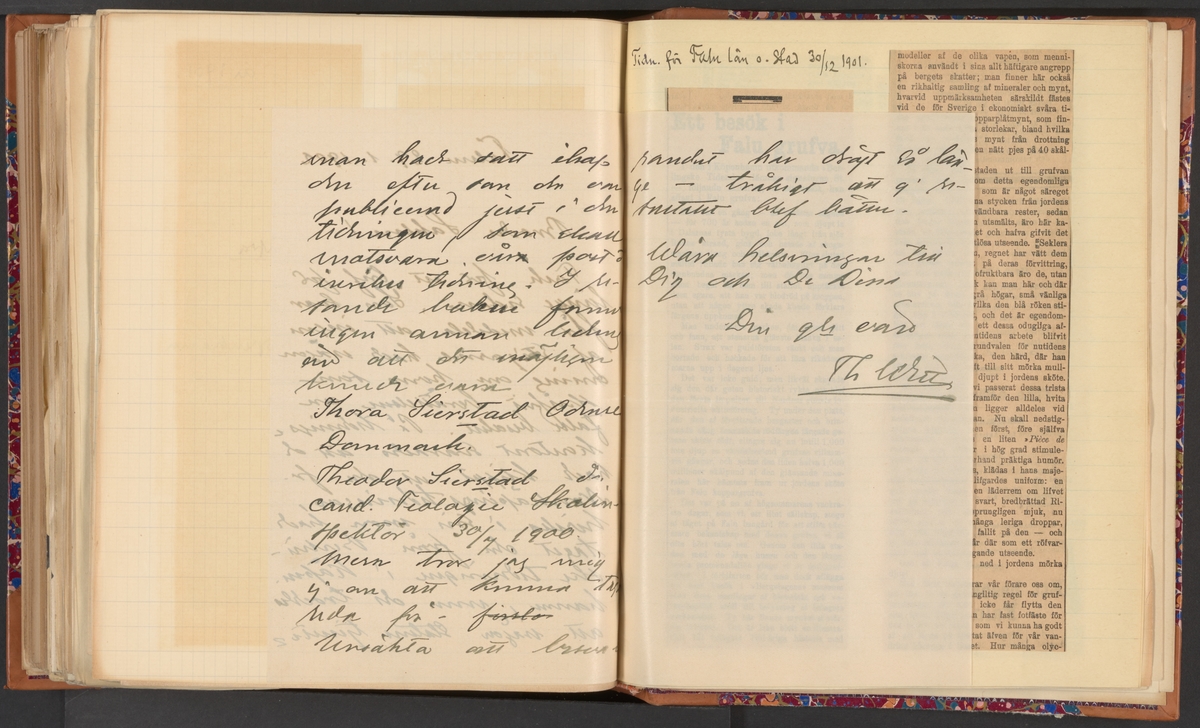 man hade satt ihop
den efter som den var
publicerad just i den
tidningen som skall
motsvara våra post o
inrikes tidning. I re-
sande boken fanns
ingen annan ledning
än att det möjligen
kunde vara
Thora Sierstad Odense
Danmark.
Theodor Sierstad
cand. Teologie Skolin-
spektör 30/7 1900
mera tror jag mig
ej om att kunna
leda på - första
Ursäkta att besva-
randet har dröjt så län-
ge – tråkigt att ej re-
sultatet blef bättre.
Våra helsningar till
Dig och De Dina
Din
Th Witt
Tidn. för Falu län o. Stad 30/12 1901.
Ett besök i
Falu grufva
modeller af de olika vapen, som menni-
skorna användt i sina allt häftigare angrepp
på bergets skatter; man finner här också
en rikhaltig samling af mineraler och mynt,
hvarvid uppmärksamheten särskildt fästes
vid de för Sverige i ekonomiskt svåra ti-
opparplåtmynt, som fin-
storlekar, bland hvilka
mynt från drottning
en nätt pjes på 40 skål-
staden ut till grufvan
om detta egendomliga
som är något säreget
na stycken från jordens
vändbara rester, sedan
utsmälts, äro här ka-
et och hafva gifvit det
tlösa utseende. Seklers
, regnet har vätt dem
på deras förvittring,
ofruktbara äro de, utan
k kan man här och där
grå högar, små vänliga
rilka den blå röken sti-
, och det är egendom-
ett dessa odugliga af-
stidens arbete blifvit
rundvalen för nutidens
ka, den härd, där han
ft till sitt mörka mull-
djupt i jordens sköte.
vi passerat dessa trista
framför den lilla, hvita
n ligger alldeles vid
an. Nu skall nedstig-
en först, före själfva
en liten »Pièce de
r i hög grad stimule-
rhand präktiga humör.
s, klädas i hans maje-
lifgardes uniform: en
en läderrem om lifvet
svart, bredbrättad Ri-
sprungligen mjuk, nu
många leriga droppar,
fallit på den — och
är där som ett röfvar-
gande utseende.
ned i jordens mörka
rar vår förare oss om,
ngiltig regel för gruf-
icke får flytta den
n har fast fotfäste för
som vi kunna ha godt
tat äfven för vår van-
et. Hur många olyc-